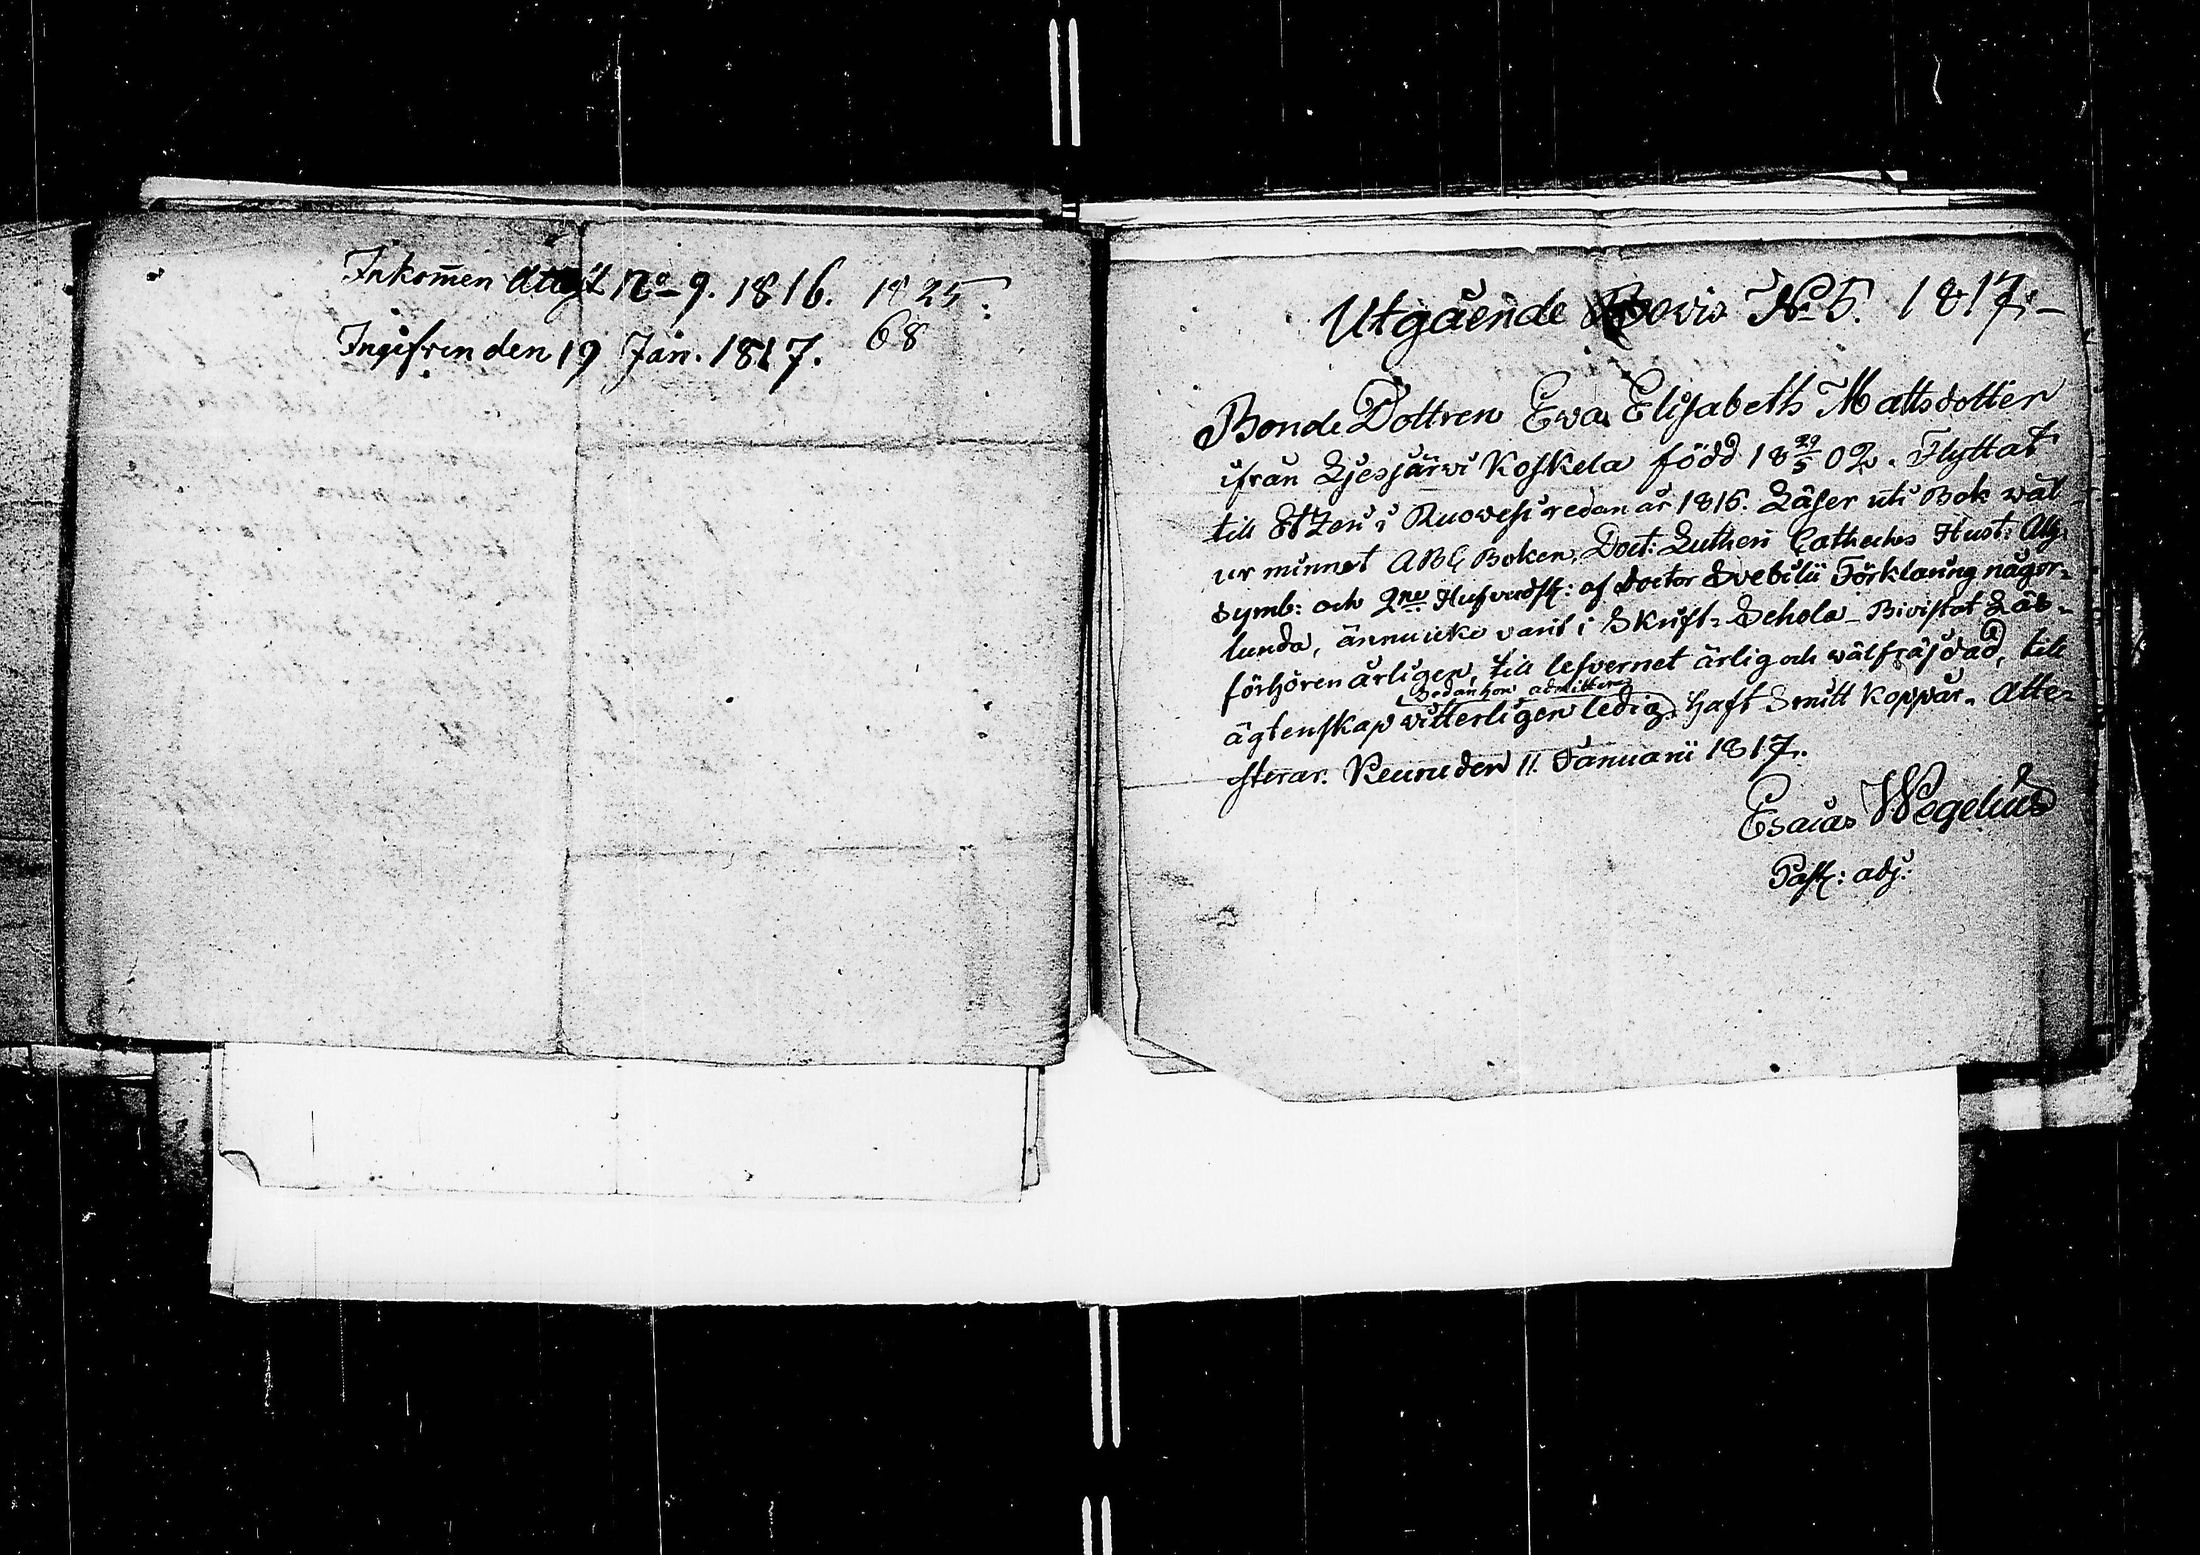 Inkom̅en attest No 9. 1816. 1825.
Ingifven den 19 Jan. 1817. 68
Utgående Bevis No 5. 1817.-
Bonde Dottren Eva Elisabeth Mattsdotter
ifrån Liesjärvi Koskela född 18 29/5 02. Flyttat
till Etzeri i Ruovesi redan år 1815. Läser uti Bok wäl
ur minnet ABC Boken, Doct: Lutheri Catheches Hust: Ath:
Symb: och 2ne Hufvudst: af Doctor Svebilii Förklaring någor=
lunda, ännu icke varit i Skrift=Schola - Bivistat Läs=
förhören årligen, till lefvernet ärlig och wälfräjdad, till
Sedan hon admitterats
ägtenskap vitterligen ledig. haft Smitt koppar. Atte=
sterar. Keuru den 11. Januarii 1817.
Esaias Wegelius
Past: adj: